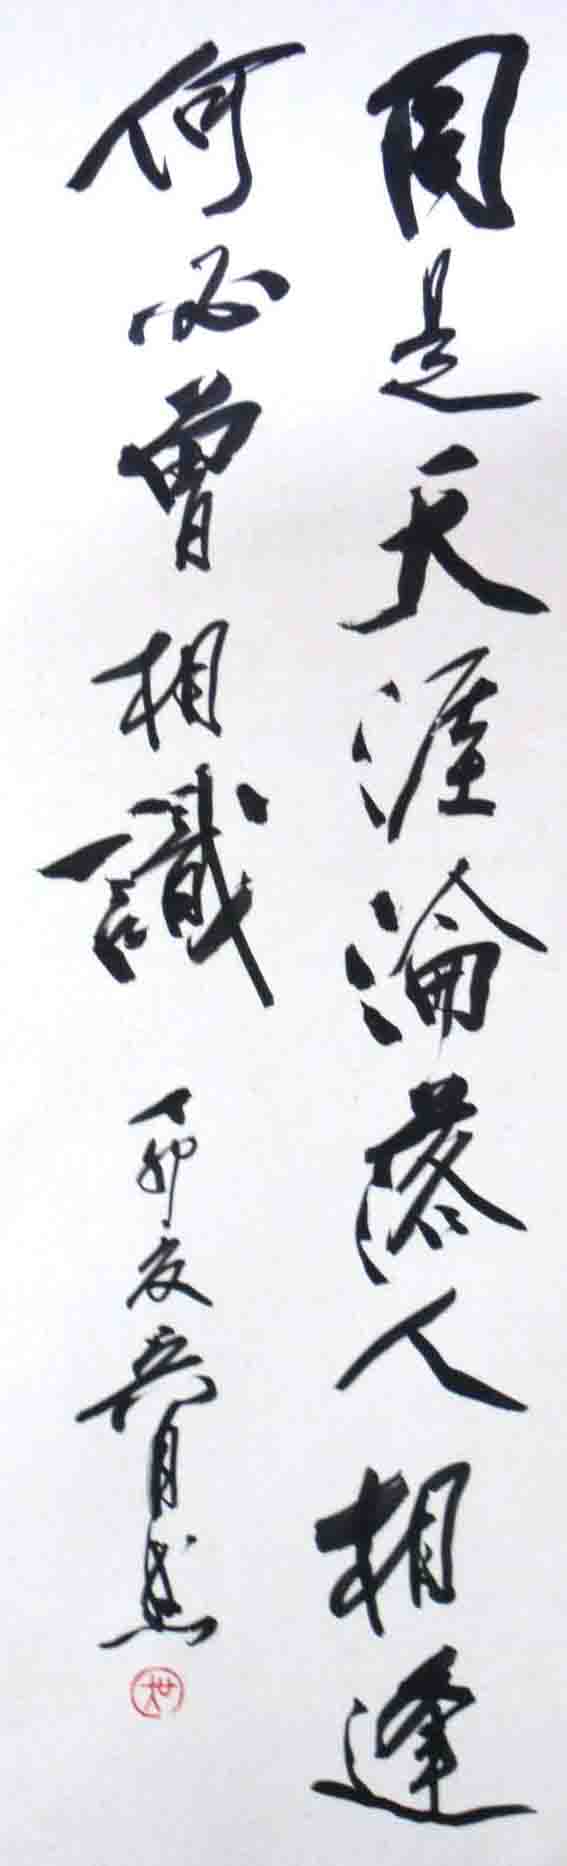 同是天涯淪落人相逢
何必曾相識
丁卯夏吳月